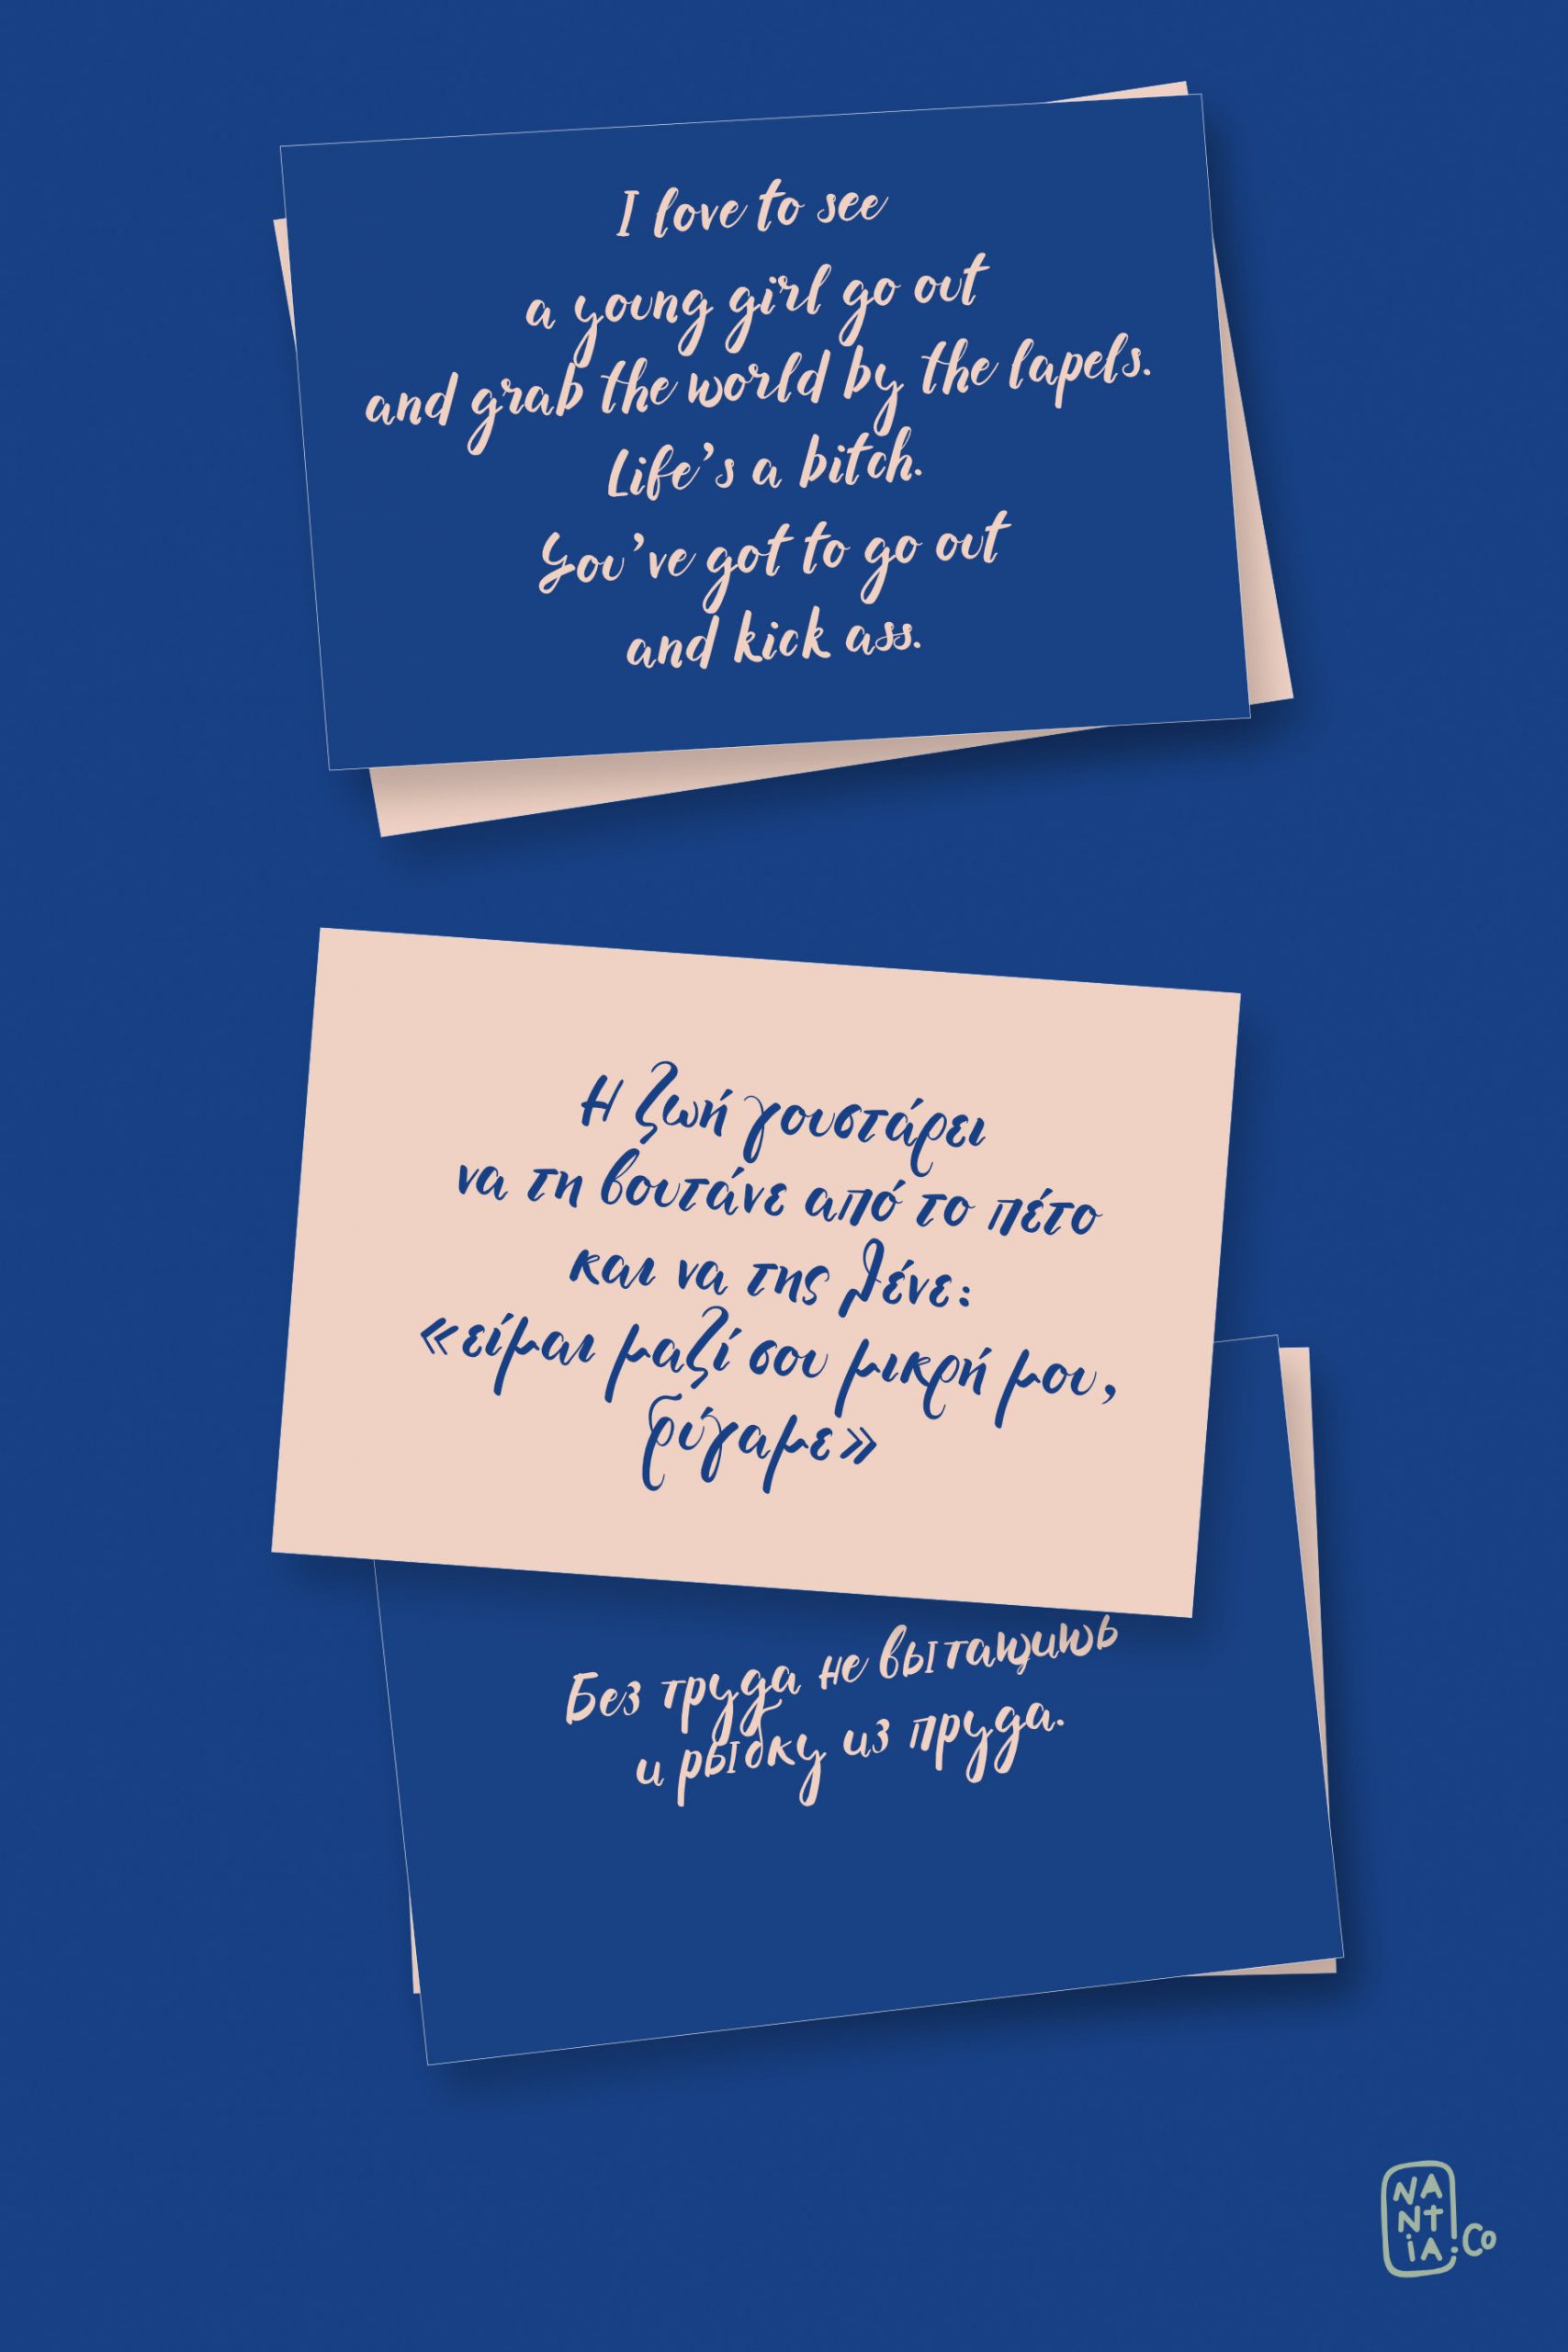 I love to see
a young girl go out
and grab the world by the lapels.
Life’s a bitch.
You’ve got to go out
and kick ass.
Η ζωή γουστάρει
να τη βουτάνε από το πέτο
και να της λένε:
«είμαι μαζί σου μικρή μου,
φύγαμε»
Без труда не вытащишь
и рыбку из пруда.
NA
Nt
iA.Co